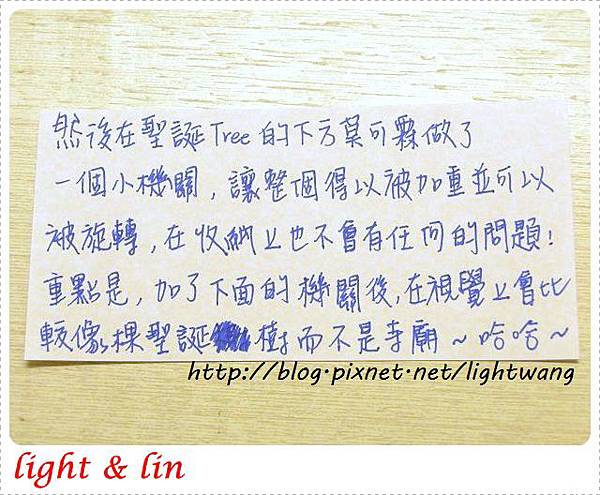 然後在聖誕Tree的下方莫可霖做了
一個小機關，讓整個得以被加重並可以
被旋轉，在收納上也不會有任何的問題！
重點是，加了下面的機關後，在視覺上會比
較像棵聖誕樹而不是寺廟～哈哈～
http://blog.pixnet.net/lightwang
light & lin